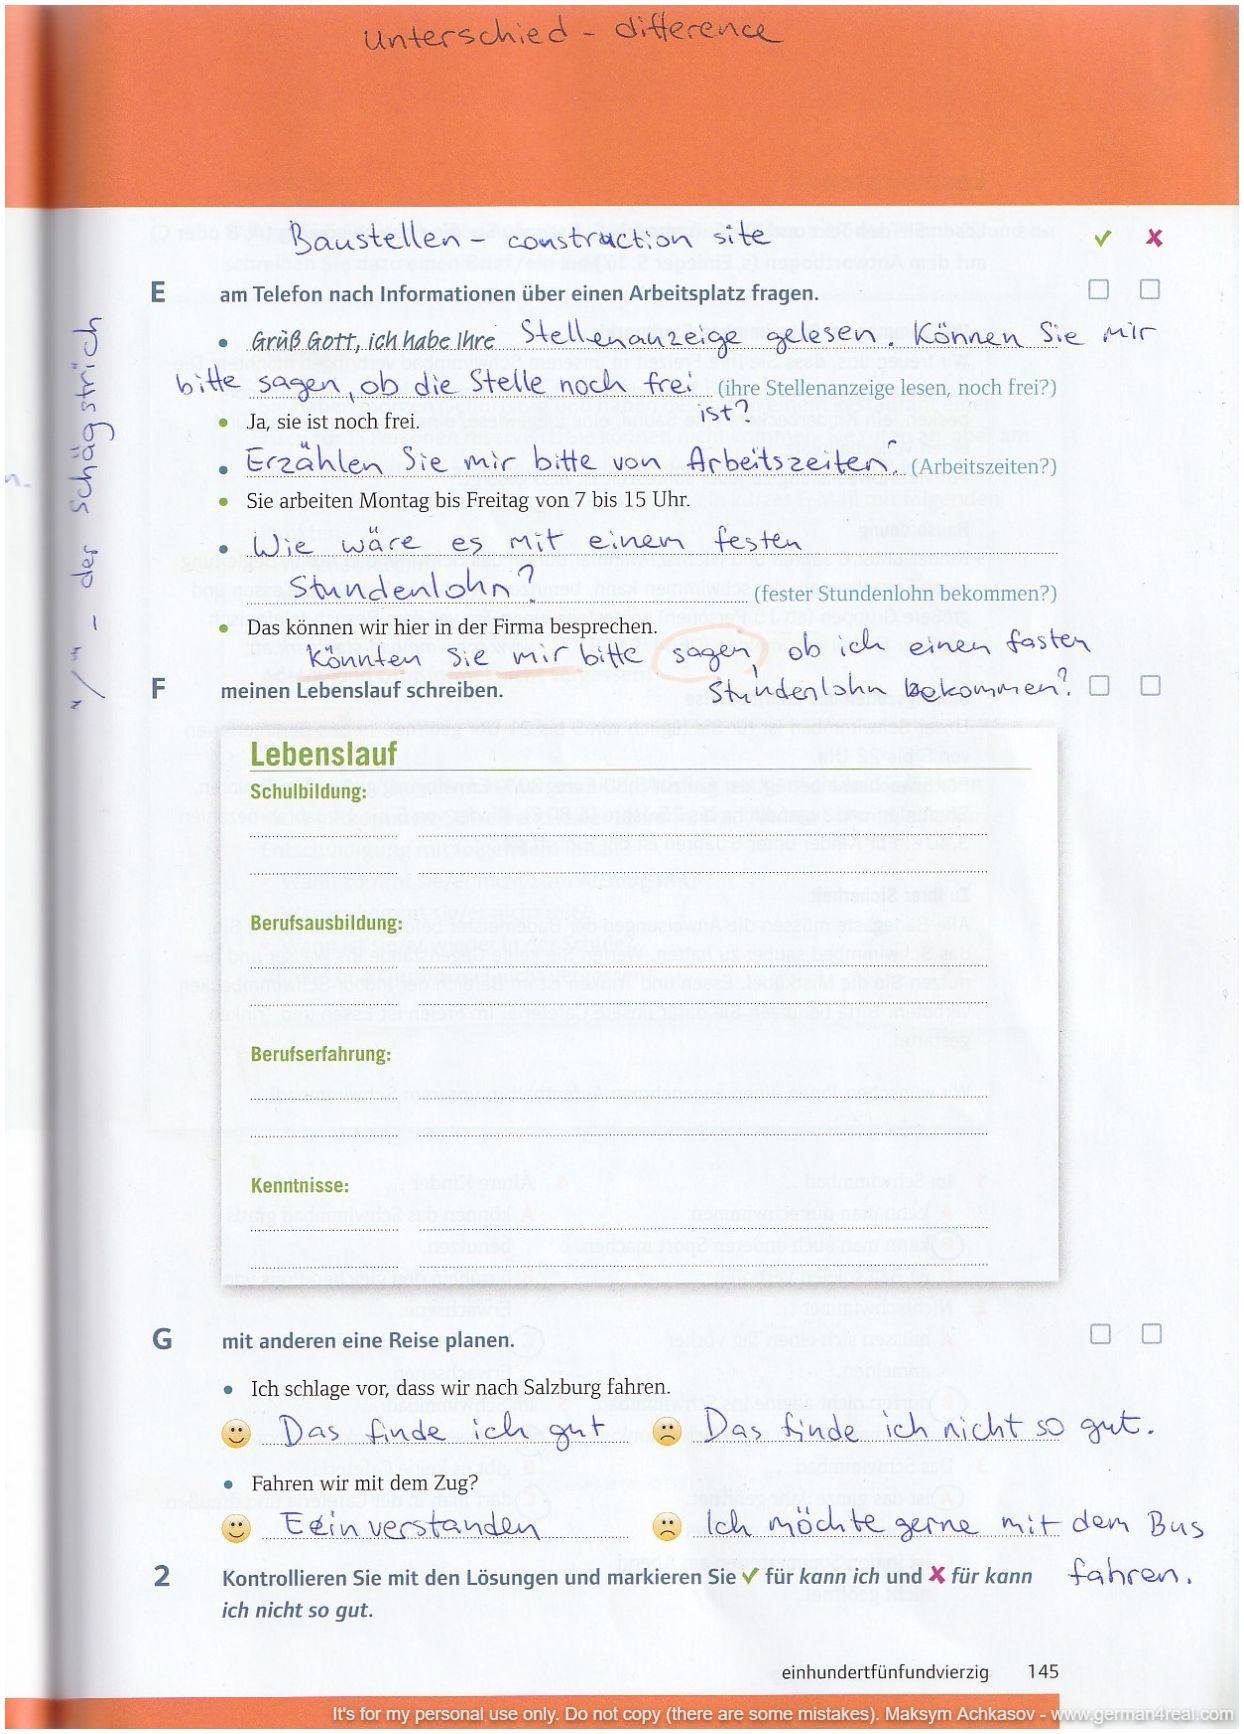 unterschied - difference
Baustellen - construction site
E am Telefon nach Informationen über einen Arbeitsplatz fragen.
• Grüß Gott, ich habe Ihre Stellenanzeige gelesen. Können Sie mir
bitte sagen, ob die Stelle noch frei (ihre Stellenanzeige lesen, noch frei?)
ist?
• Ja, sie ist noch frei.
• Erzählen Sie mir bitte von Arbeitszeiten. (Arbeitszeiten?)
• Sie arbeiten Montag bis Freitag von 7 bis 15 Uhr.
• Wie wäre es mit einem festen
Stundenlohn? (fester Stundenlohn bekommen?)
• Das können wir hier in der Firma besprechen.
Könnten Sie mir bitte sagen, ob ich einen fasten
Stundenlohn bekommen?
"/" - der schägstrich
F meinen Lebenslauf schreiben.
Lebenslauf
Schulbildung:
Berufsausbildung:
Berufserfahrung:
Kenntnisse:
G mit anderen eine Reise planen.
• Ich schlage vor, dass wir nach Salzburg fahren.
Das finde ich gut Das finde ich nicht so gut.
• Fahren wir mit dem Zug?
Einverstanden Ich möchte gerne mit dem Bus
fahren.
2 Kontrollieren Sie mit den Lösungen und markieren Sie ✓ für kann ich und ✗ für kann
ich nicht so gut.
einhundertfünfundvierzig 145
It's for my personal use only. Do not copy (there are some mistakes). Maksym Achkasov - www.german4real.com